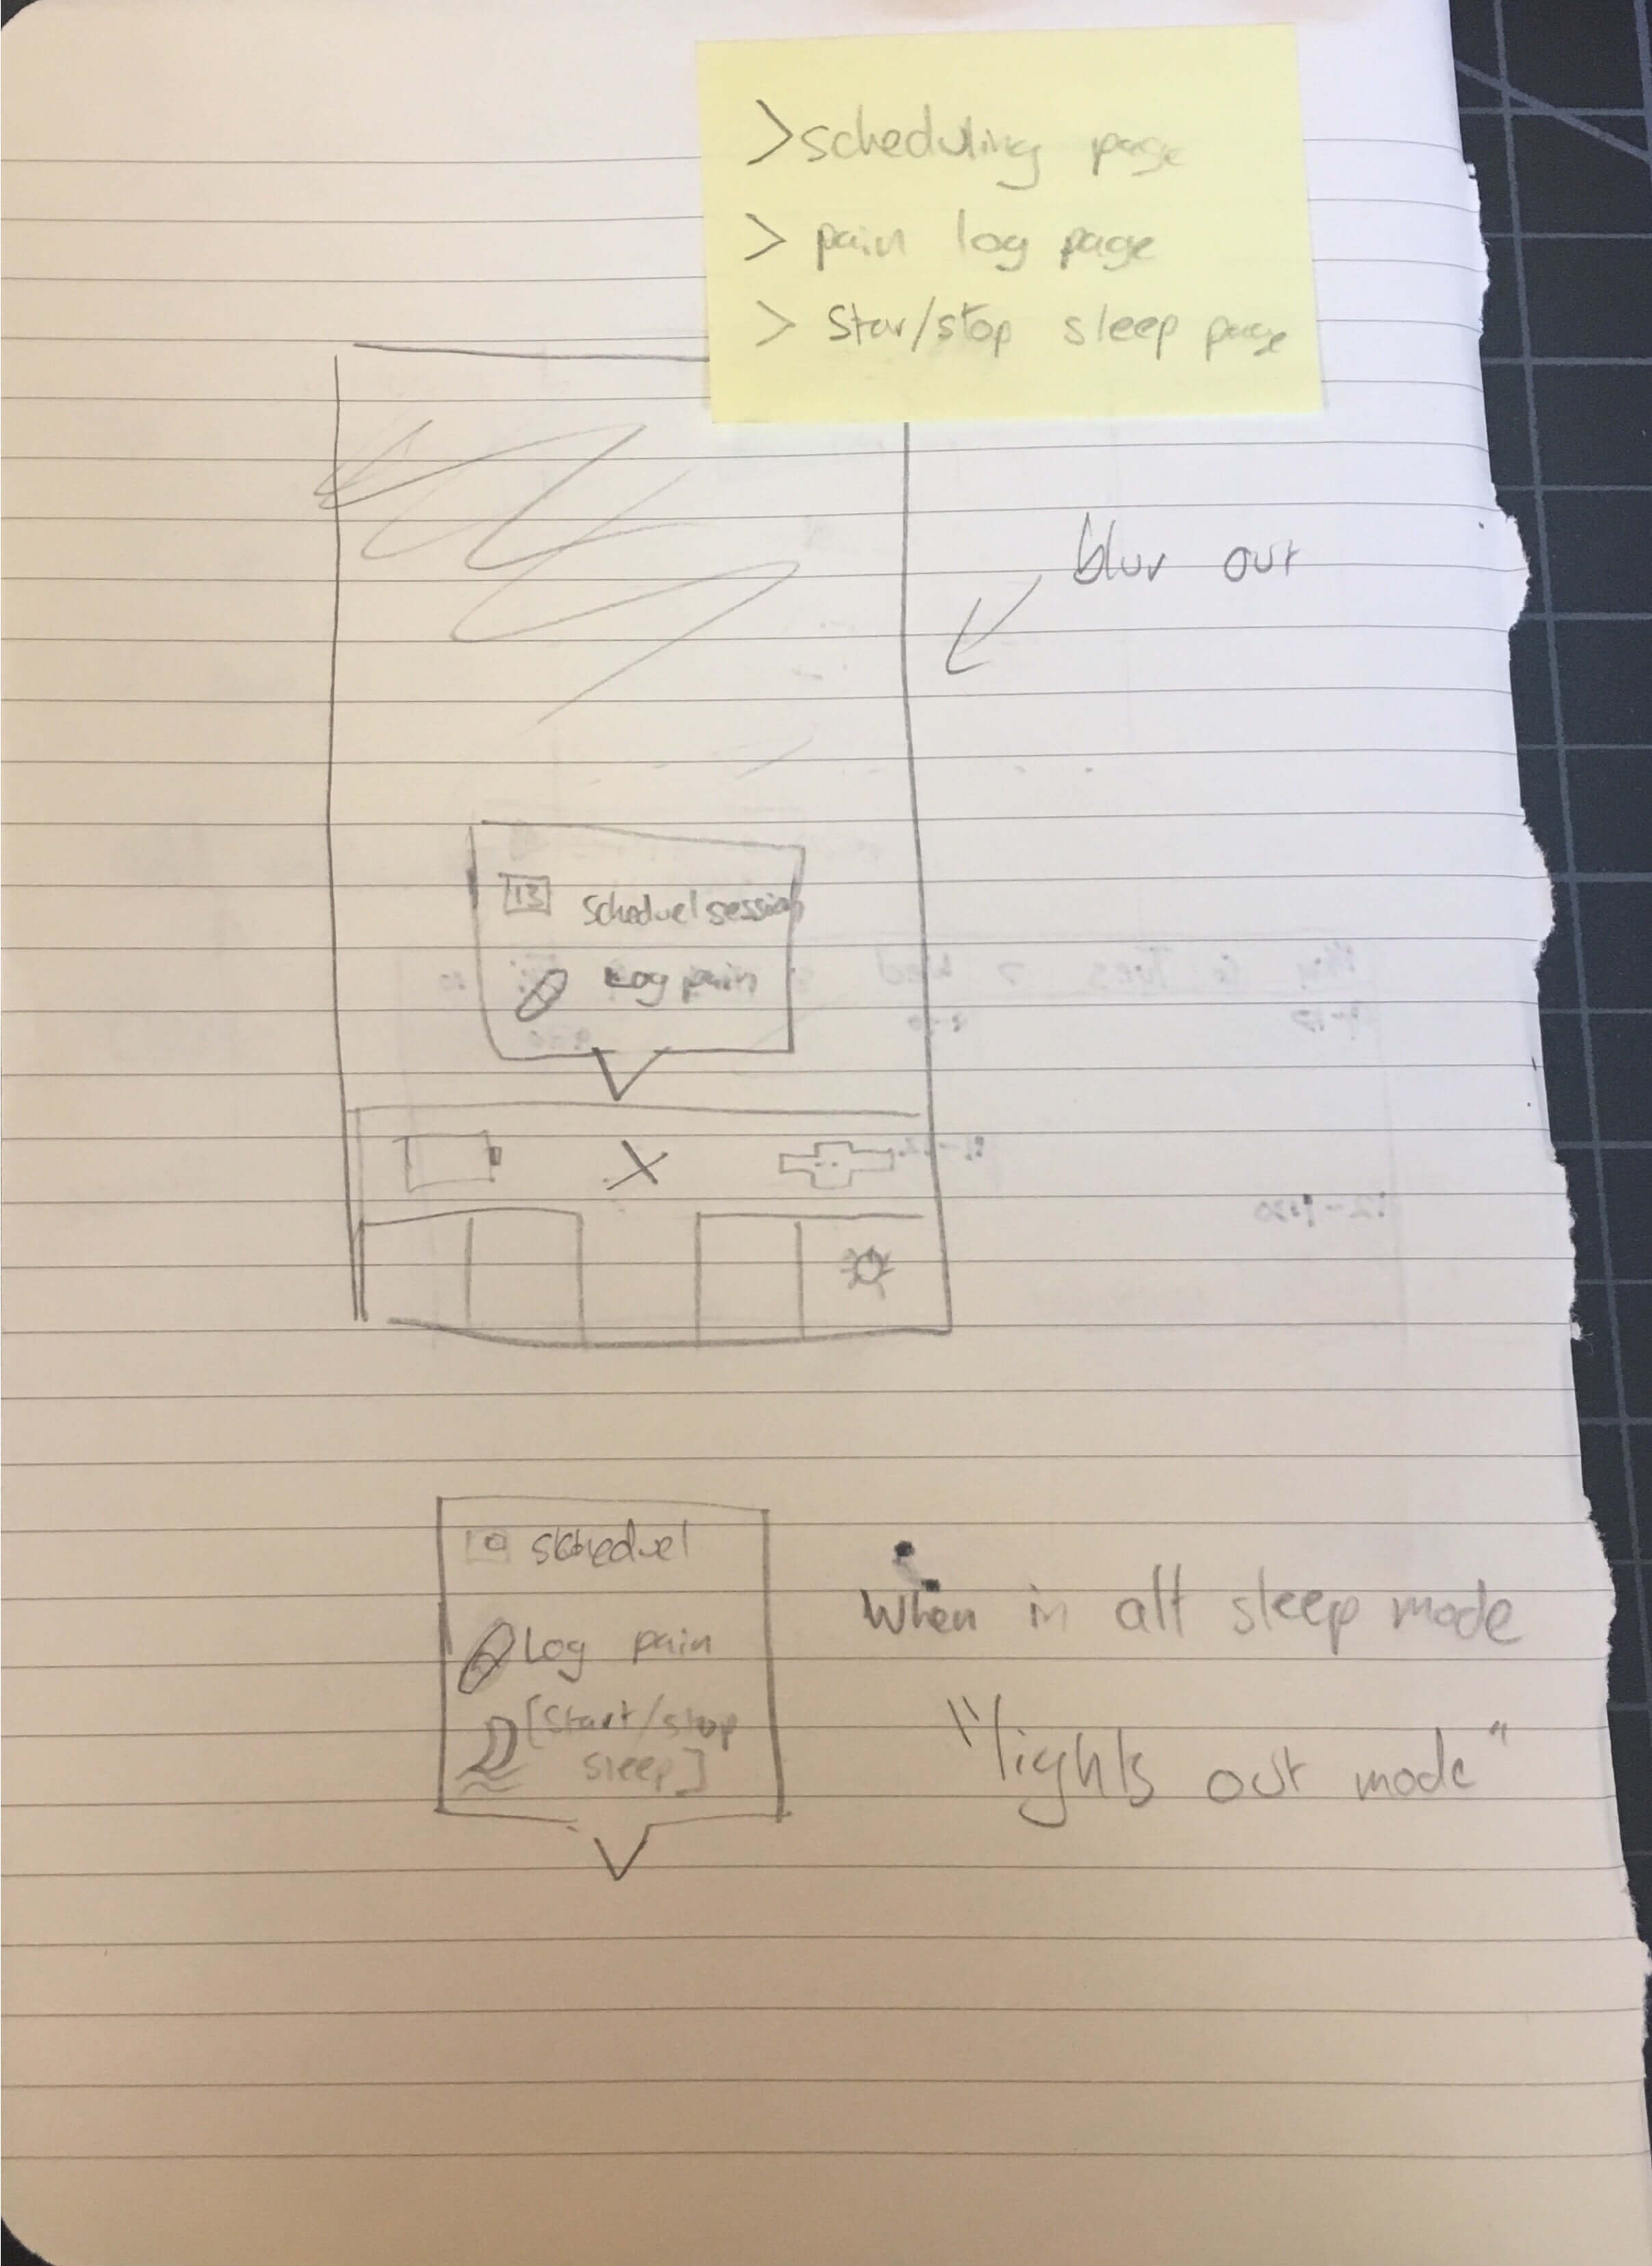 >scheduling page
> pain log page
> Star/stop sleep page
blur out
13 Scheduel session
Log pain
scheduel
Log pain
[Start/stop
sleep]
When in alt sleep mode
"lights out mode"